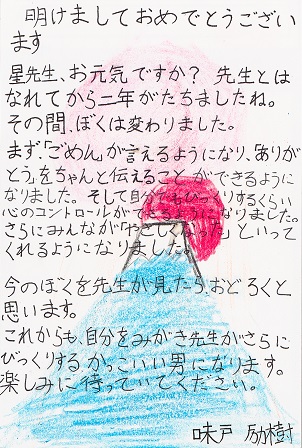 明けましておめでとうござい
ます
星先生、お元気ですか? 先生とは
なれてから二年がたちましたね。
その間、ぼくは変わりました。
まず、「ごめん」が言えるようになり、「ありが
とう」をちゃんと伝えること」ができるように
なりました。そして自分でもびっくりするくらい
心のコントロールができるようになりました。
さらにみんなが「やさしくなった」といって
くれるようになりました。
今のぼくを先生が見たらおどろくと
思います。
これからも、自分をみがき先生がさらに
びっくりするかっこいい男になります。
楽しみに待っていてください。
味戸 励樹